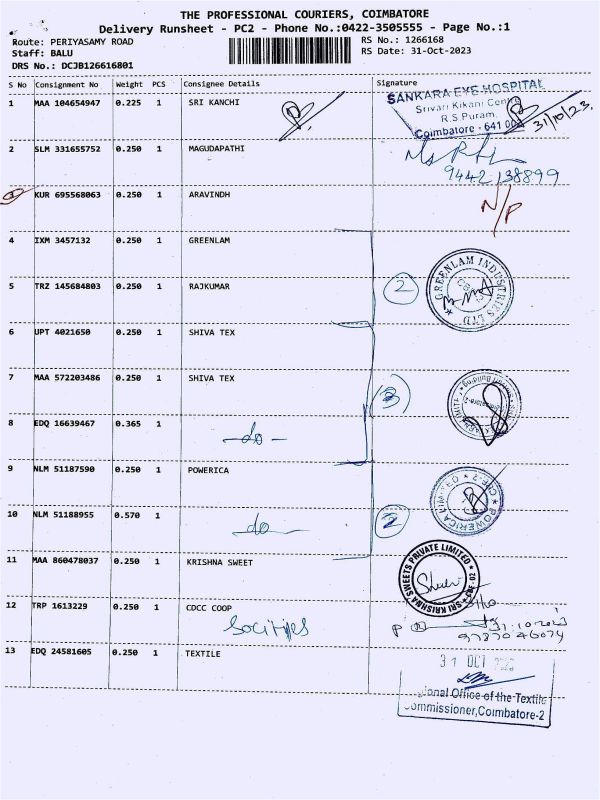 THE PROFESSIONAL COURIERS, COIMBATORE
Delivery Runsheet - PC2 - Phone No.:0422-3505555 - Page No.:1
Route: PERIYASAMY ROAD RS No.: 1266168
Staff: BALU RS Date: 31-Oct-2023
DRS No.: DCJB126616801
S No Consignment No Weight PCS Consignee Details Signature
1 MAA 104654947 0.225 1 SRI KANCHI
SANKARA EYE HOSPITAL
Srivari Kikani Centre
R.S.Puram,
Coimbatore - 641 002
31/10/23.
2 SLM 331655752 0.250 1 MAGUDAPATHI
9442138899
KUR 695568063 0.250 1 ARAVINDH N/P
4 IXM 3457132 0.250 1 GREENLAM
GREENLAM INDUSTRIES LTD
5 TRZ 145684803 0.250 1 RAJKUMAR 2
6 UPT 4021650 0.250 1 SHIVA TEX
7 MAA 572203486 0.250 1 SHIVA TEX 3
8 EDQ 16639467 0.365 1 -do-
9 NLM 51187590 0.250 1 POWERICA
POWERICA LIMITED
10 NLM 51188955 0.570 1 do 2
11 MAA 860478037 0.250 1 KRISHNA SWEET
SRI KRISHNA SWEETS PRIVATE LIMITED
12 TRP 1613229 0.250 1 CDCC COOP
31.10.2023
9787046074
13 EDQ 24581605 0.250 1 TEXTILE
31 OCT 2023
ional Office of the Textile
ommissioner, Coimbatore-2